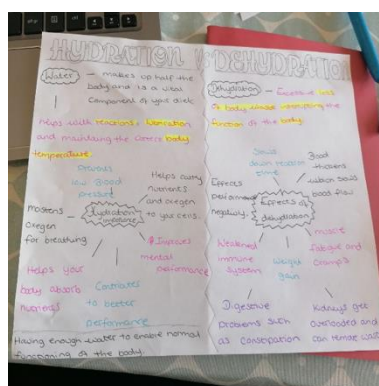 HYDRATION vs DEHYDRATION
Water – makes up half the
body and is a vital
component of your diet
helps with reactions, lubrication
and maintaining the correct body
temperature.
Prevents
low Blood
pressure
Helps carry
nutrients
and oxygen
to your cells.
Hydration
importance
moistens
oxygen
for breathing
Improves
mental
performance
Helps your
body absorb
nutrients
Contributes
to better
performance
Having enough water to enable normal
functioning of the body.
Dehydration – Excessive loss
of body water interrupting the
function of the body
Slows
down reaction
time
Blood
thickens
which slows
blood flow
Effects
performance
negatively.
Effects of
dehydration
Weakened
immune
system
weight
gain
muscle
fatigue and
cramps
Digestive
problems such
as constipation
Kidneys get
overloaded and
can remove waste